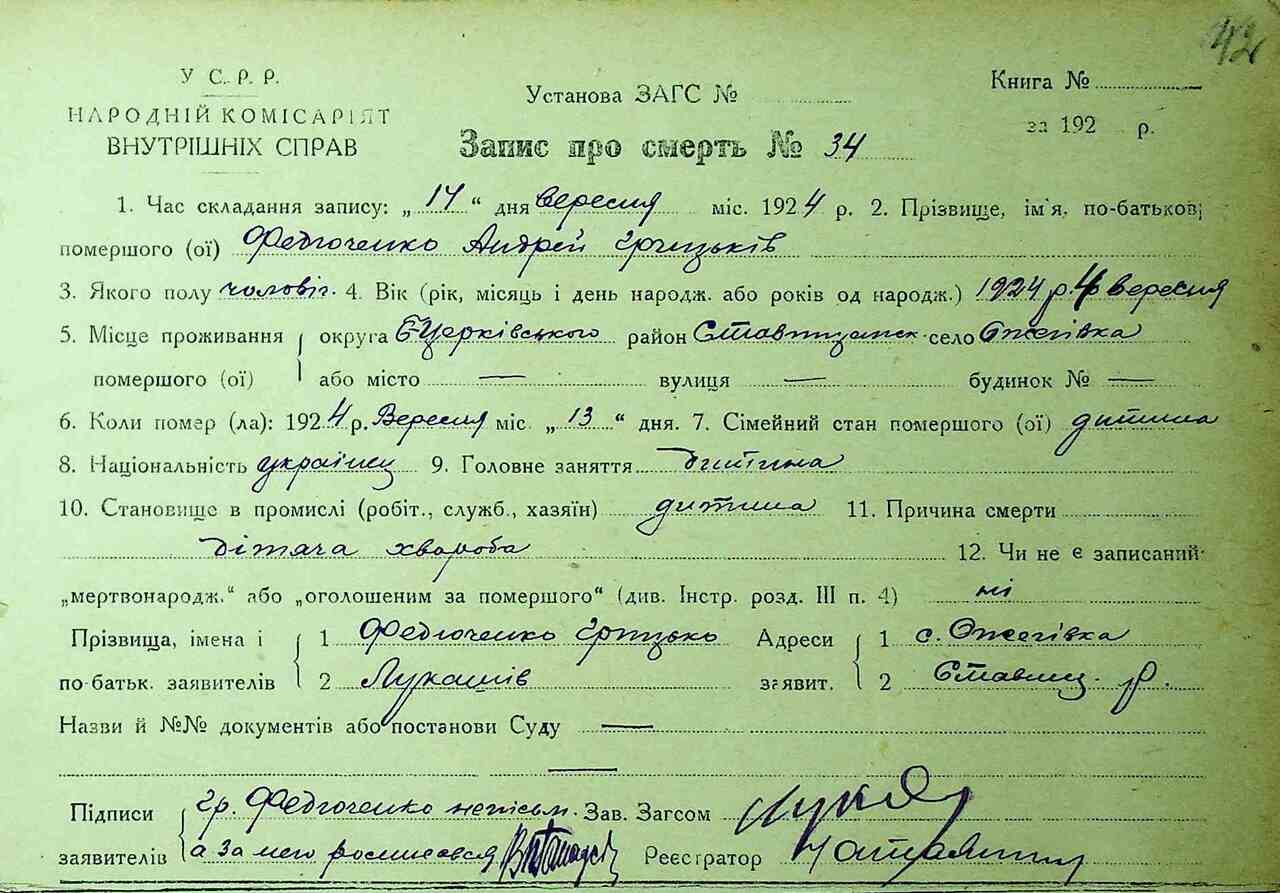 42
У С. Р. Р.
НАРОДНІЙ КОМІСАРІЯТ
ВНУТРІШНІХ СПРАВ
Установа ЗАГС №
Книга №
за 192 р.
Запис про смерть № 34
1. Час складання запису: „ 14 “ дня вересня міс. 1924 р. 2. Прізвище, ім'я, по-батькові
помершого (ої) Федюченко Андрей Грицьків
3. Якого полу чоловіг. 4. Вік (рік, місяць і день народж. або років од народж.) 1924 р 4 вересня
5. Місце проживання округа Б-Церківського район Ставищанск село Ожегівка
помершого (ої) або місто — вулиця — будинок № —
6. Коли помер (ла): 1924 р. Вересня міс. „ 13 “ дня. 7. Сімейний стан помершого (ої) дитина
8. Національність українец 9. Головне заняття дитина
10. Становище в промислі (робіт., служб., хазяїн) дитина 11. Причина смерти
дітяча хвороба 12. Чи не є записаний
„мертвонародж.“ або „оголошеним за помершого“ (див. Інстр. розд. III п. 4) ні
Прізвища, імена і 1 Федюченко Грицько Адреси 1 с. Ожегівка
по-батьк. заявителів 2 Лукашів заявит. 2 Ставищ. р.
Назви й №№ документів або постанови Суду —
—
Підписи гр. Федюченко непісьм. Зав. Загсом
заявителів а за него росписався Реєстратор